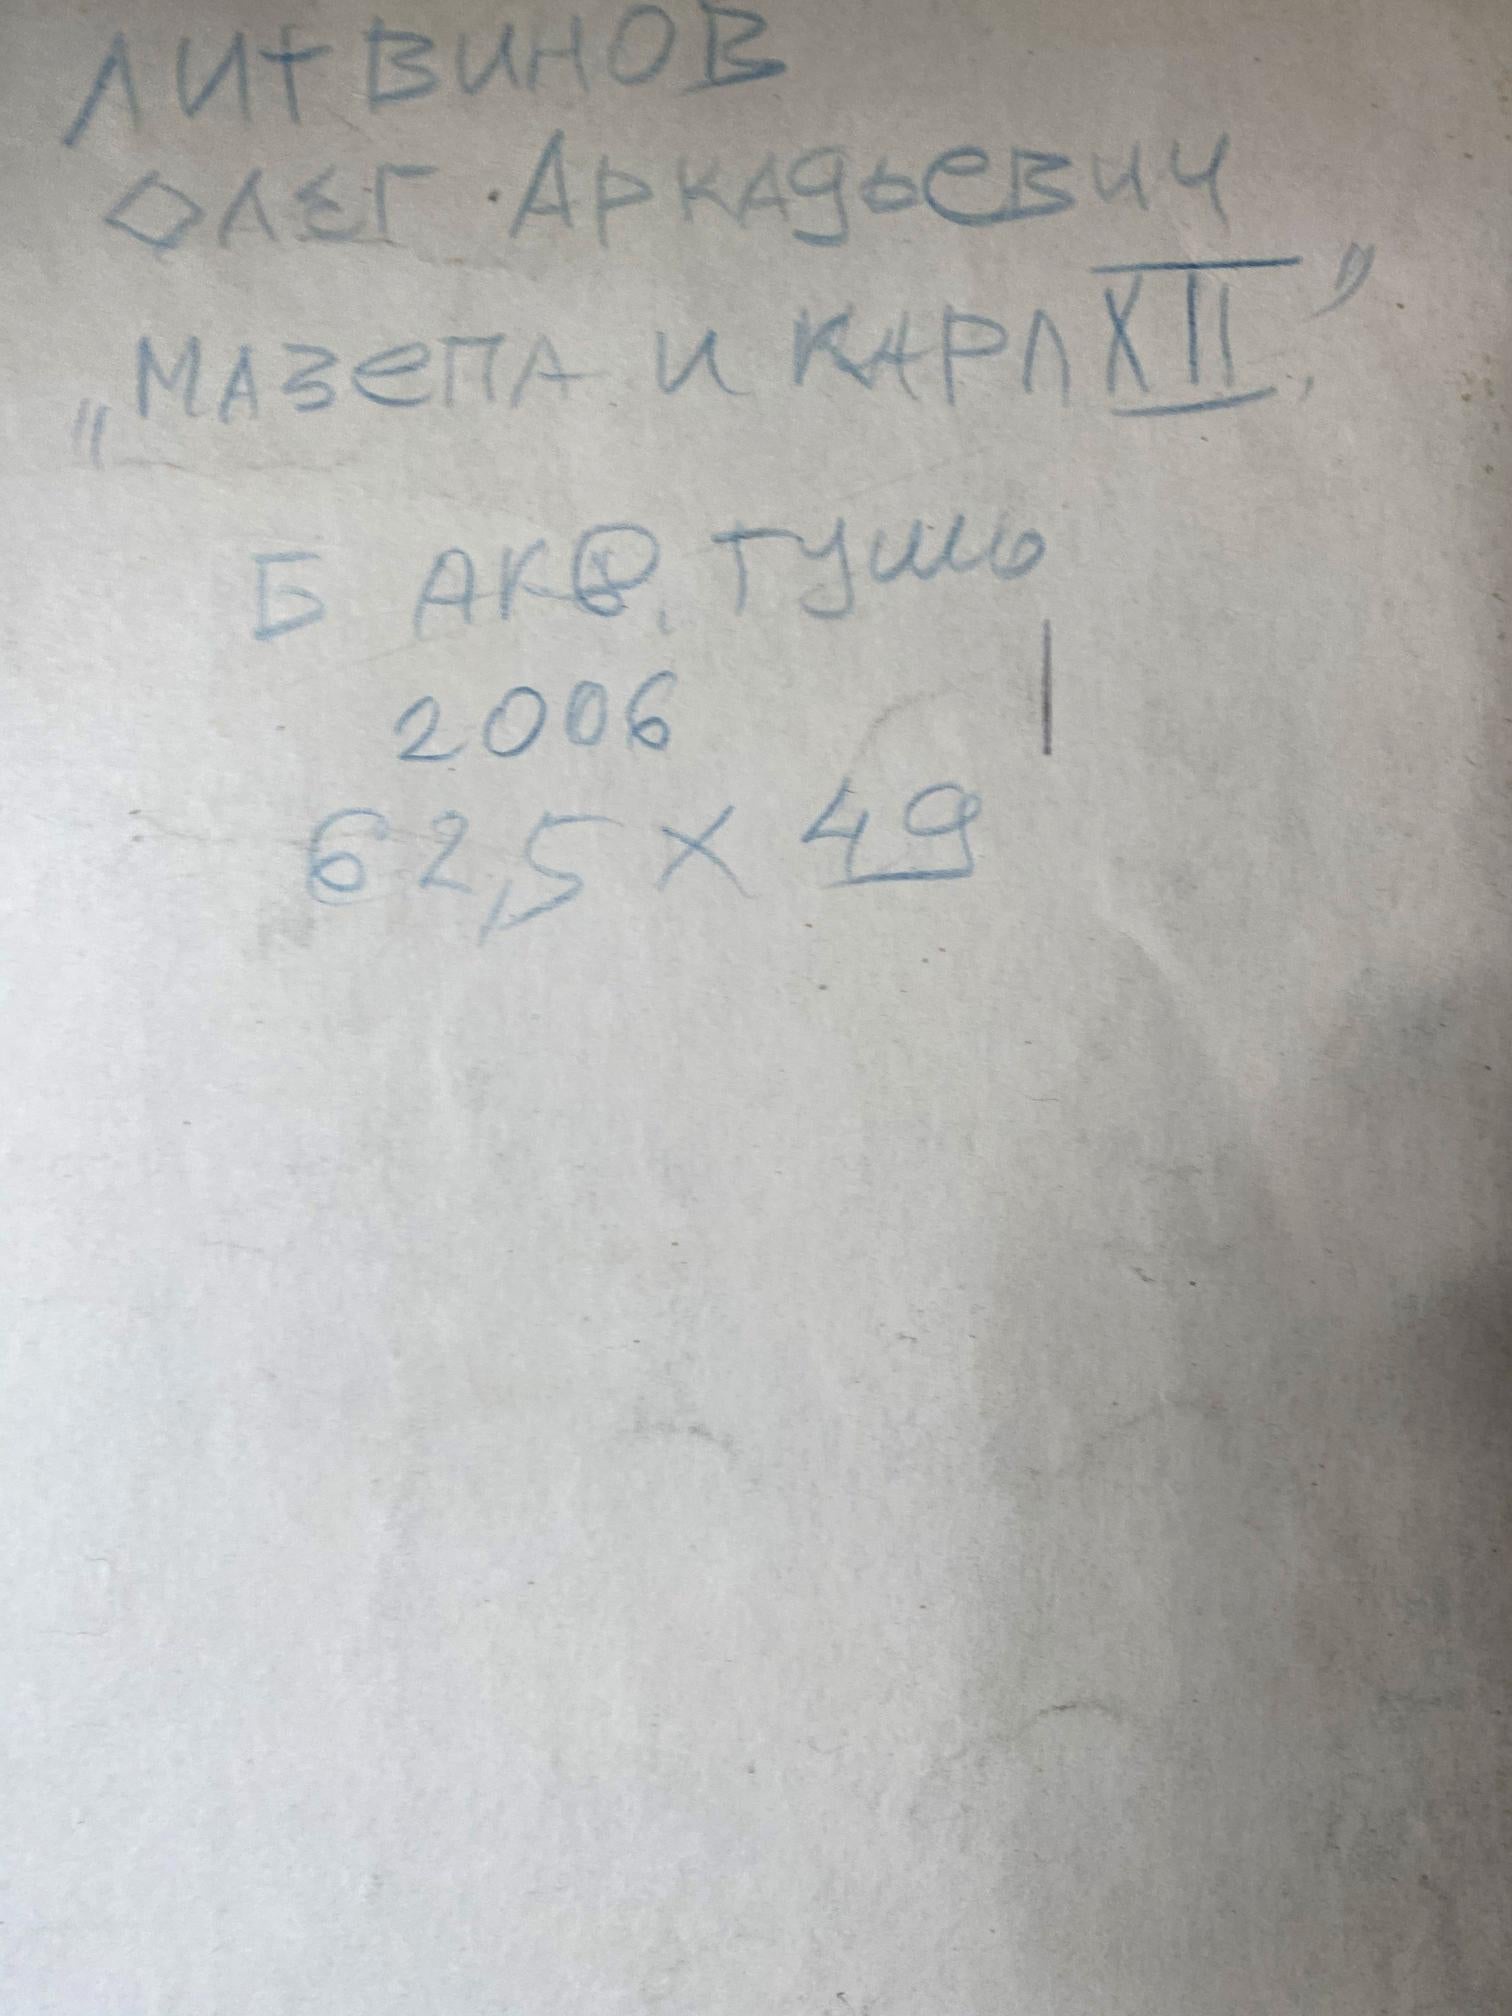 ЛИТВИНОВ
ОЛЕГ АРКАДЬЕВИЧ
„МАЗЕПА И КАРЛ XII,”
Б АКВ. ТУШЬ
2006
62,5 х 49